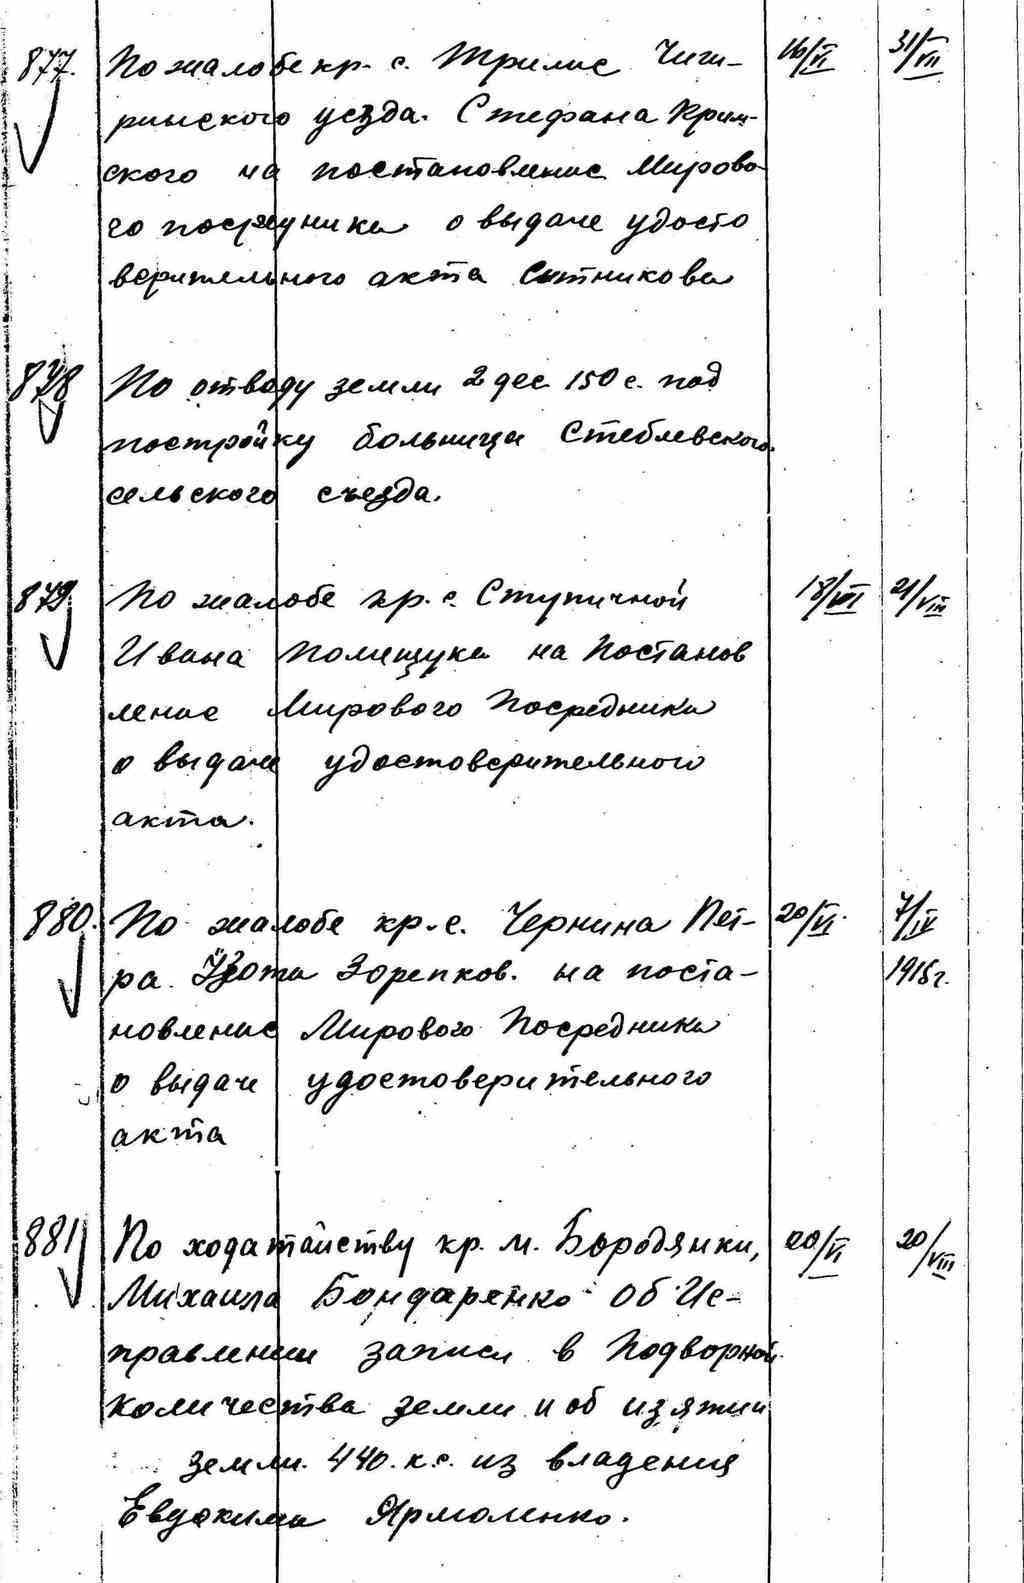 877. По жалобе кр. с. Трилис Чиги- 16/VI 31/VII
ринского уезда. Стефана Крим-
ского на постановление Мирово
го посредника о выдаче удосто
верительного акта Ситникова
878 По отводу земли 2 дес 150 с. под
постройку больницы Стеблевского
сельского съезда.
879 По жалобе кр. с. Ступичной 18/VII 21/VIII
Ивана Полищука на Постанов
ление Мирового Посредника
о выдаче удостоверительного
акта.
880. По жалобе кр. с. Чернина Пет- 20/VI. 7/IV
ра Зорепков. на поста- 1915г.
новление Мирового Посредника
о выдаче удостоверительного
акта
881 По ходатайству кр. м. Бородянки, 20/VI 20/VIII
Михаила Бондаренко об Ис-
правлении записи в Подворной
количества земли и об изятии
земли. 440. к.с. из владения
Евдокима Ярмоленко.